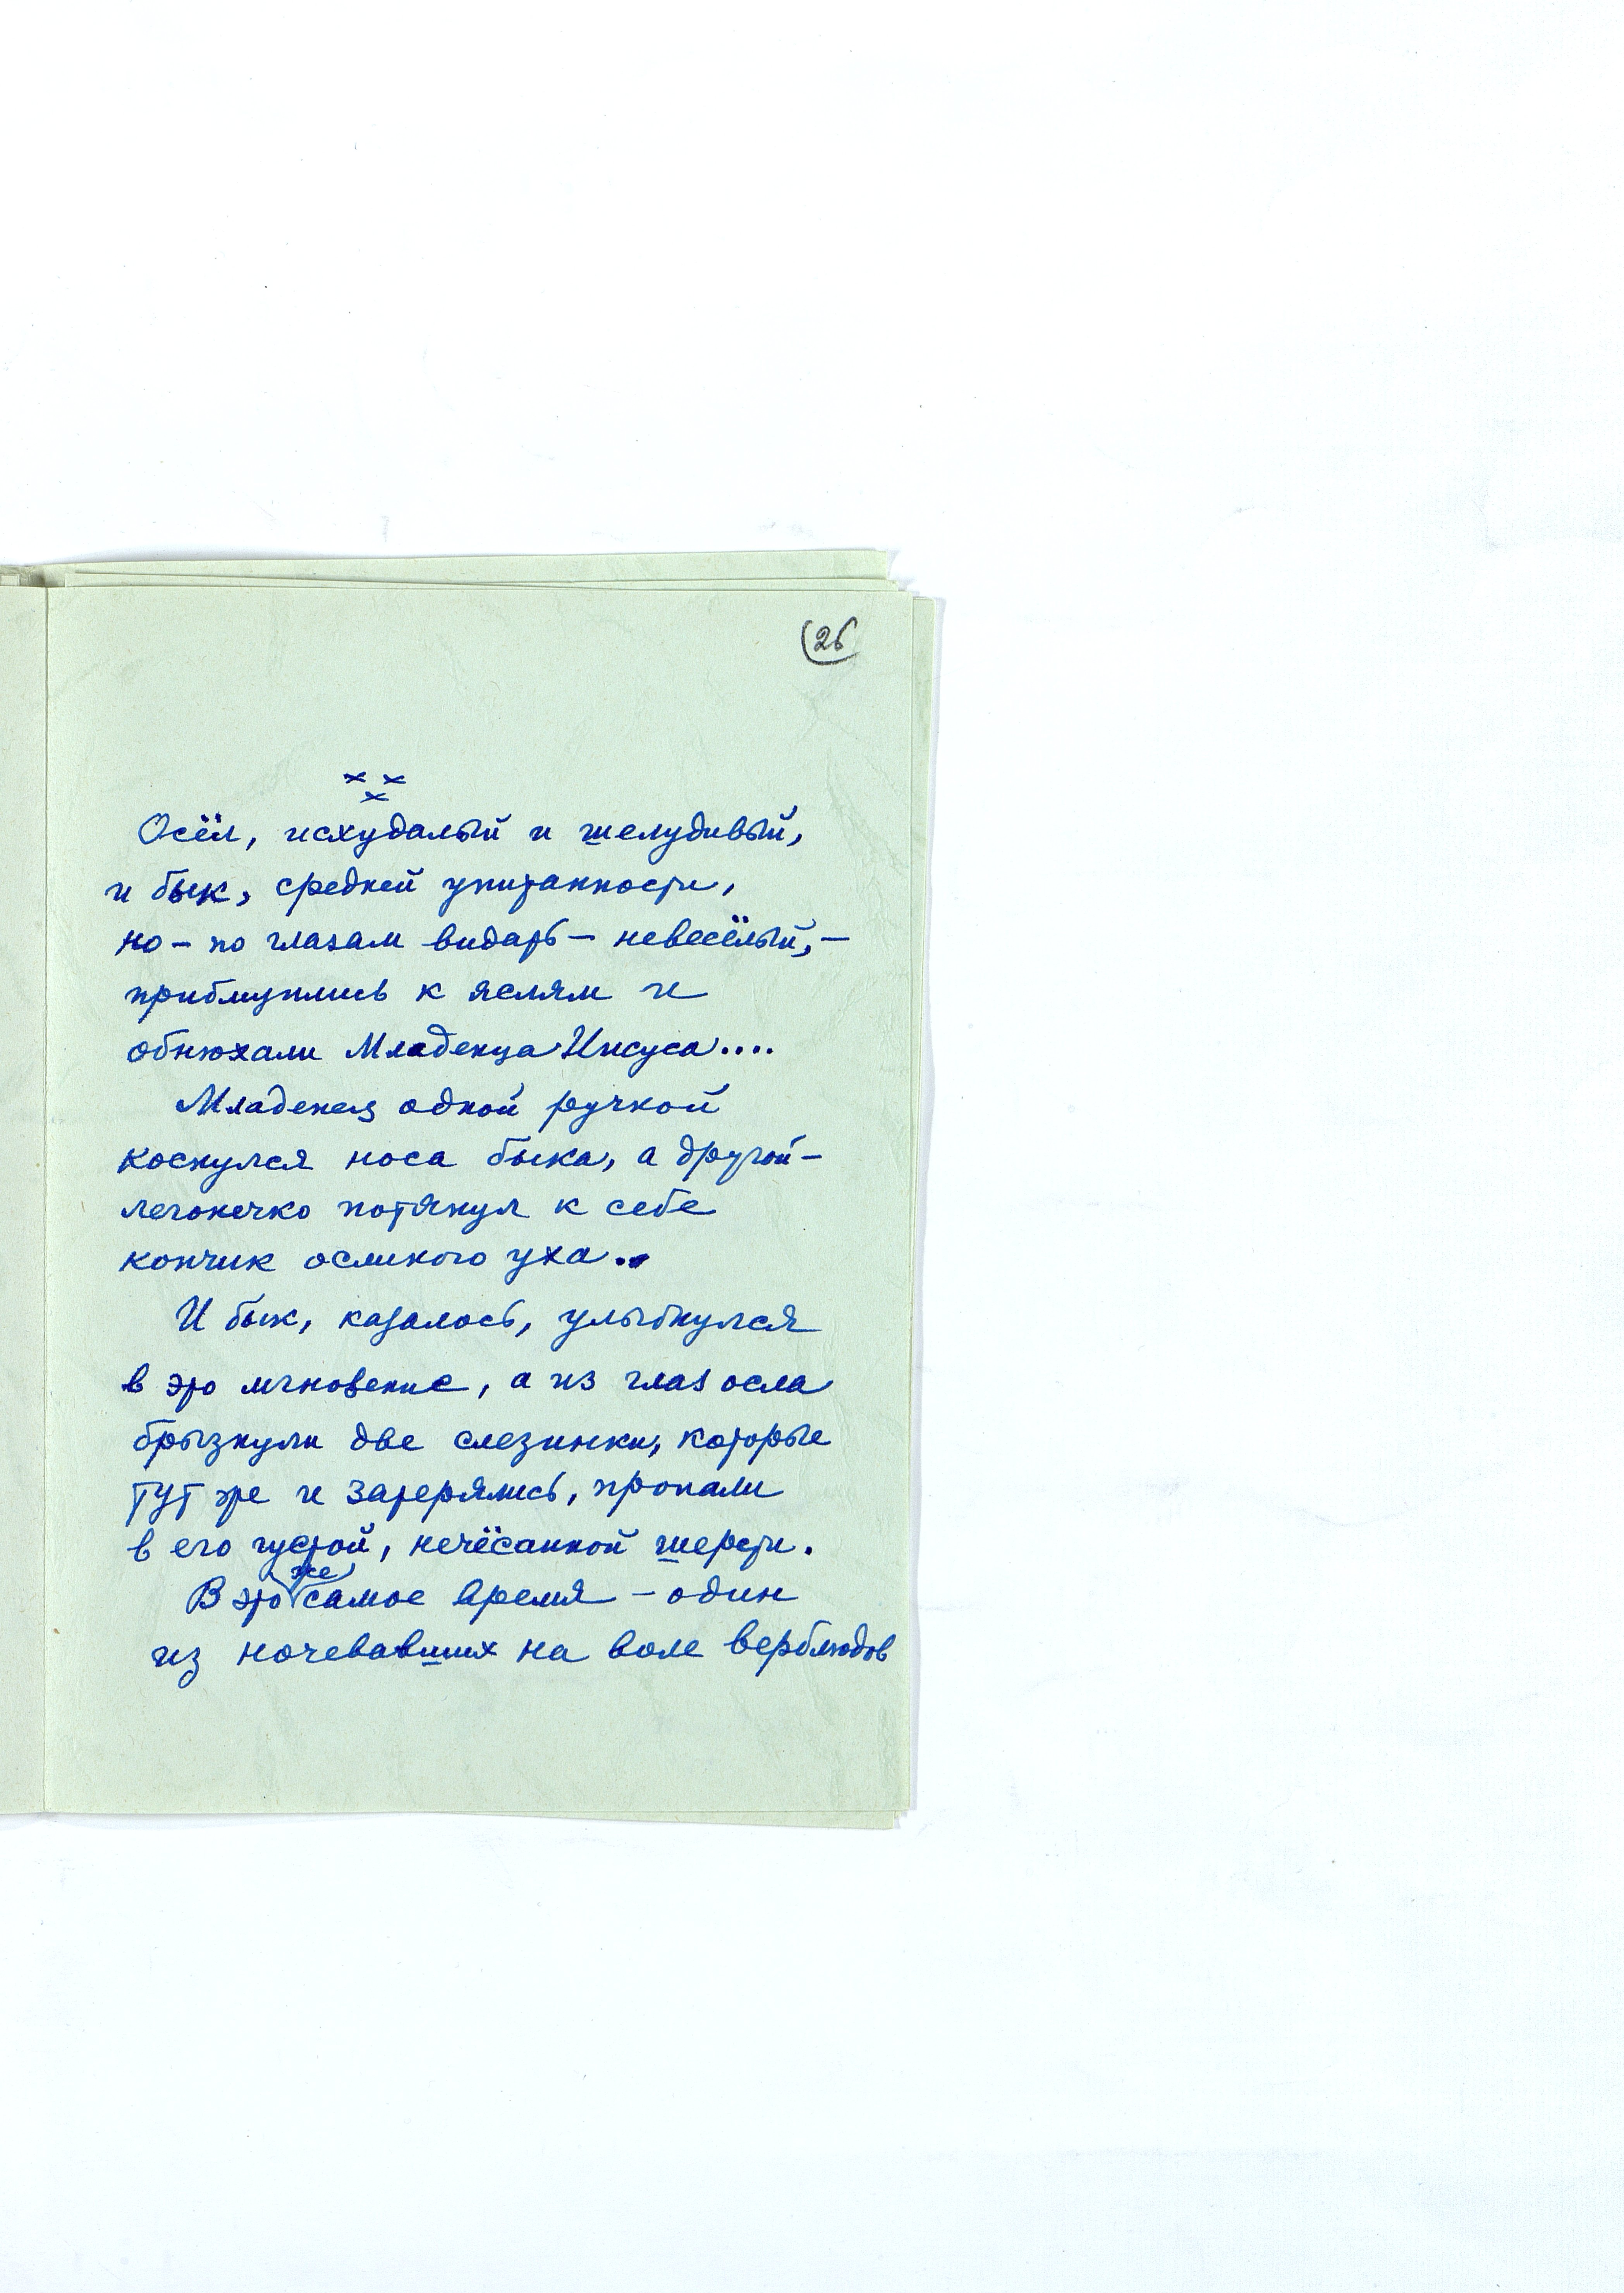 26
× ×
×
Осёл, исхудалый и шелудивый,
и бык, средней упитанности,
но – по глазам видать – невесёлый, –
приблизились к яслям и
обнюхали Младенца Иисуса....
Младенец одной ручкой
коснулся носа быка, а другой –
легонечко потянул к себе
кончик ослиного уха..
И бык, казалось, улыбнулся
в это мгновение, а из глаз осла
брызнули две слезинки, которые
тут же и затерялись, пропали
в его густой, нечёсанной шерсти.
же
В это самое время – один
из ночевавших на воле верблюдов